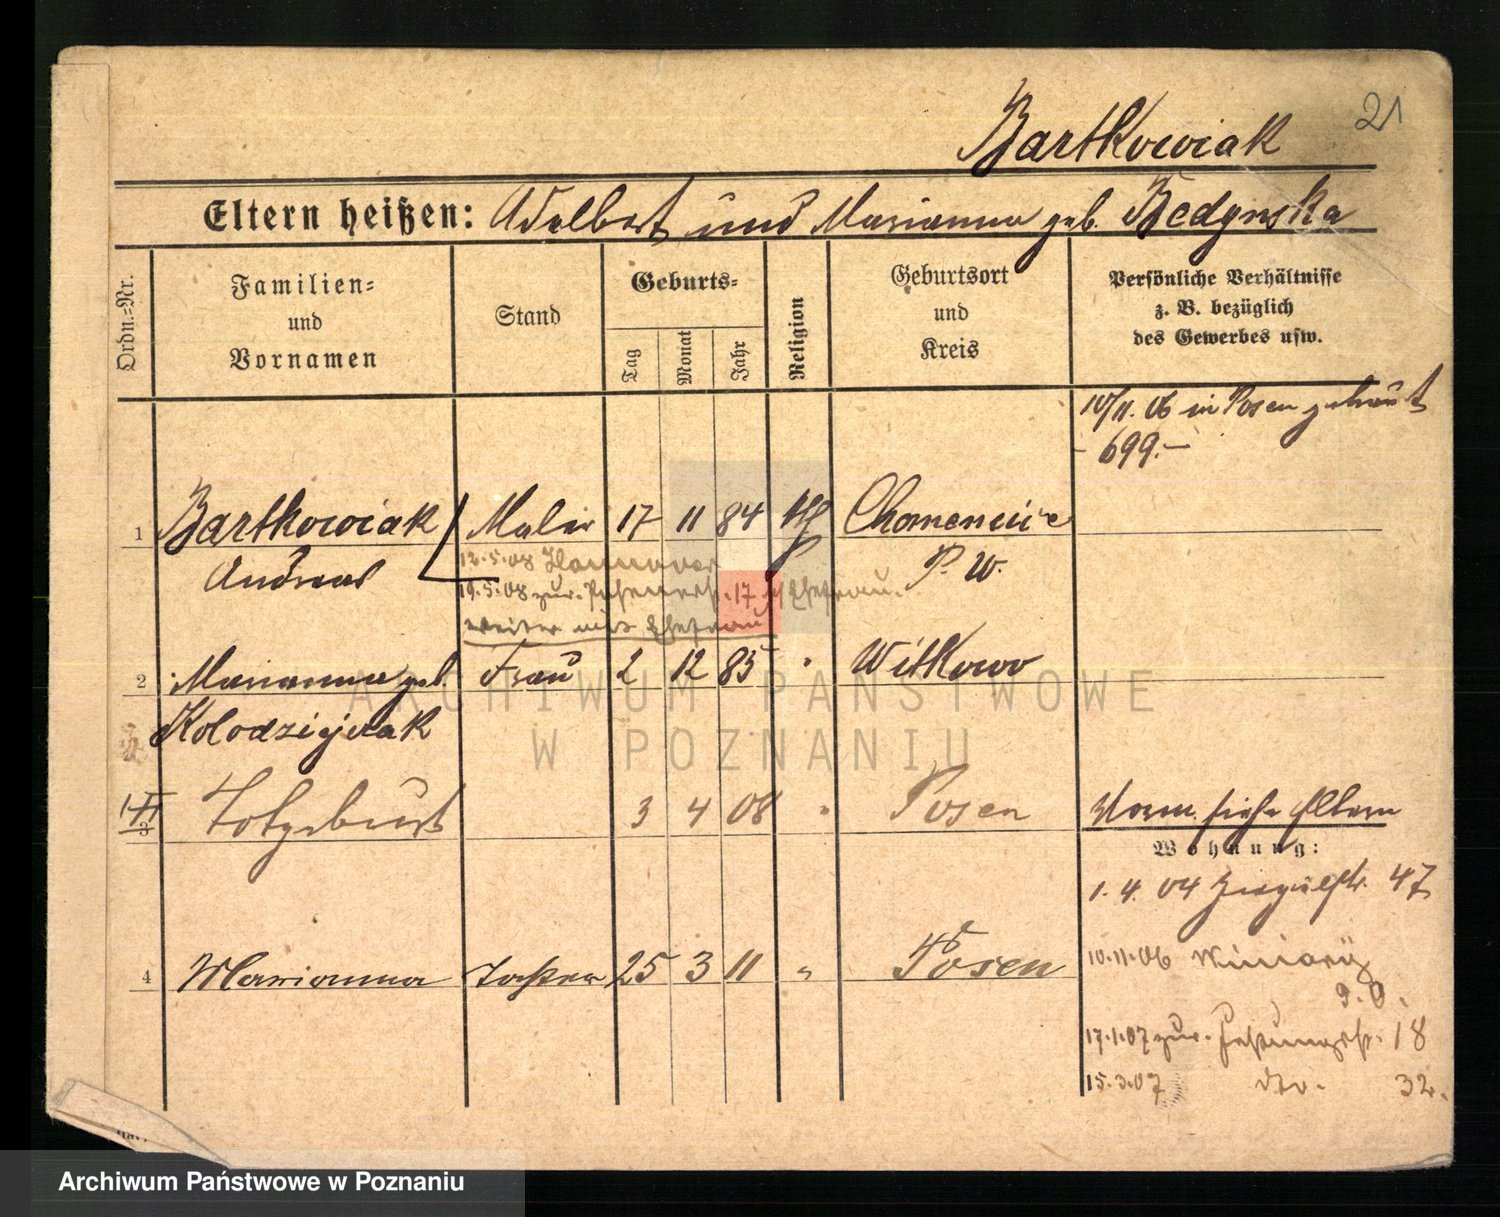 21
Bartkowiak
Eltern heißen: Adelbert und Marianna geb. Bedynska
Ordn.=Nr.
Familien=
und
Vornamen
Stand
Geburts=
Tag
Monat
Jahr
Religion
Geburtsort
und
Kreis
Persönliche Verhältnisse
z. B. bezüglich
des Gewerbes usw.
10/11. 06 in Posen getraut
- 699.-
1 Bartkowiak Maler 17 11 84 kth Chomencice
Andreas P. W.
12.5.08 Hannover
19.5.08 zur. 17 Ehefrau.
weiter mit Ehefrau
2 Marianna geb. Frau 2 12 85 " Witkowo
Kolodziejczak
3 Totgeburt 3 4 08 " Posen
Vorm. siehe Eltern
Wohnung:
1. 4. 04 47
4 Marianna Tochter 25 3 11 " Posen
10.11.06 Winiary
17.1.07 zur. Festungsstr. 18
15.3.07 dto. 32.
ARCHIWUM PAŃSTWOWE
W POZNANIU
Archiwum Państwowe w Poznaniu